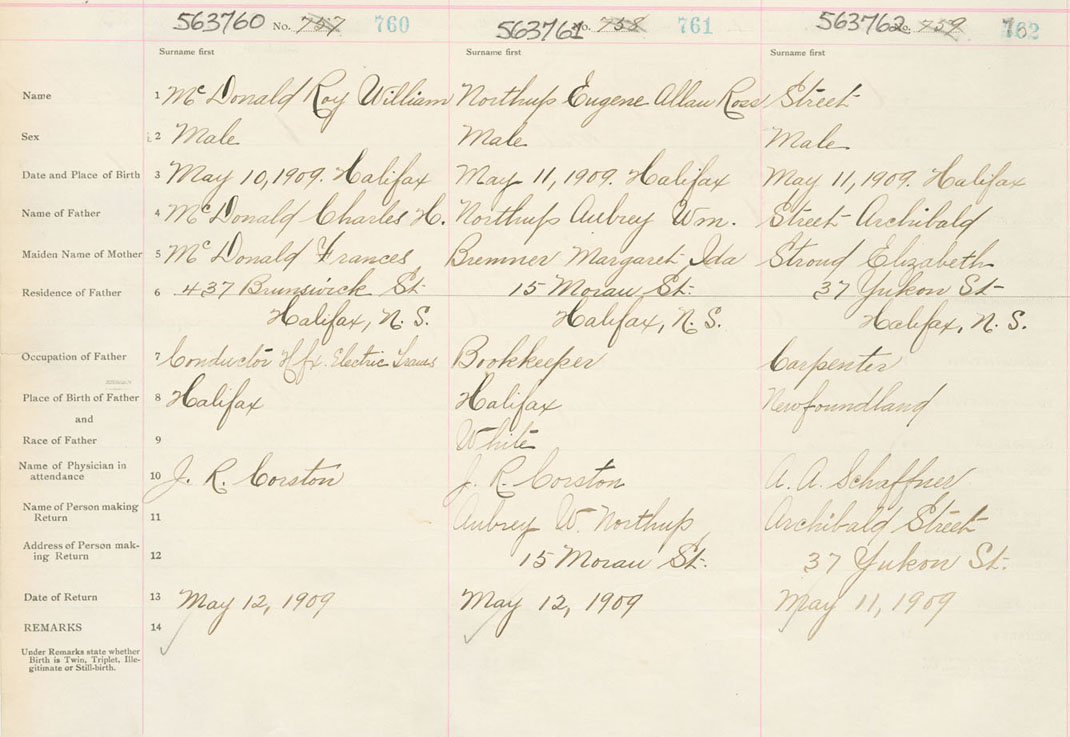 563760 No. 757 760 563761 No. 758 761 563762 No. 759 762
Surname first Surname first Surname first
Name 1 McDonald Roy William Northup Eugene Allan Ross Street
Sex 2 Male Male Male
Date and Place of Birth 3 May 10, 1909. Halifax May 11, 1909. Halifax May 11, 1909. Halifax
Name of Father 4 McDonald Charles H. Northup Aubrey Wm. Street Archibald
Maiden Name of Mother 5 McDonald Frances Bremner Margaret Ida Stroud Elizabeth
Residence of Father 6 437 Brunswick St. 15 Moran St. 37 Yukon St
Halifax, N. S. Halifax, N. S. Halifax, N. S.
Occupation of Father 7 Conductor Hfx. Electric Trams Bookkeeper Carpenter
Place of Birth of Father 8 Halifax Halifax Newfoundland
and
Race of Father 9 White
Name of Physician in
attendance 10 J. R. Corston J. R. Corston A. A. Schaffner
Name of Person making
Return 11 Aubrey W. Northup Archibald Street
Address of Person mak-
ing Return 12 15 Moran St. 37 Yukon St.
Date of Return 13 May 12, 1909 May 12, 1909 May 11, 1909
REMARKS 14
Under Remarks state whether
Birth is Twin, Triplet, Ille-
gitimate or Still-birth.